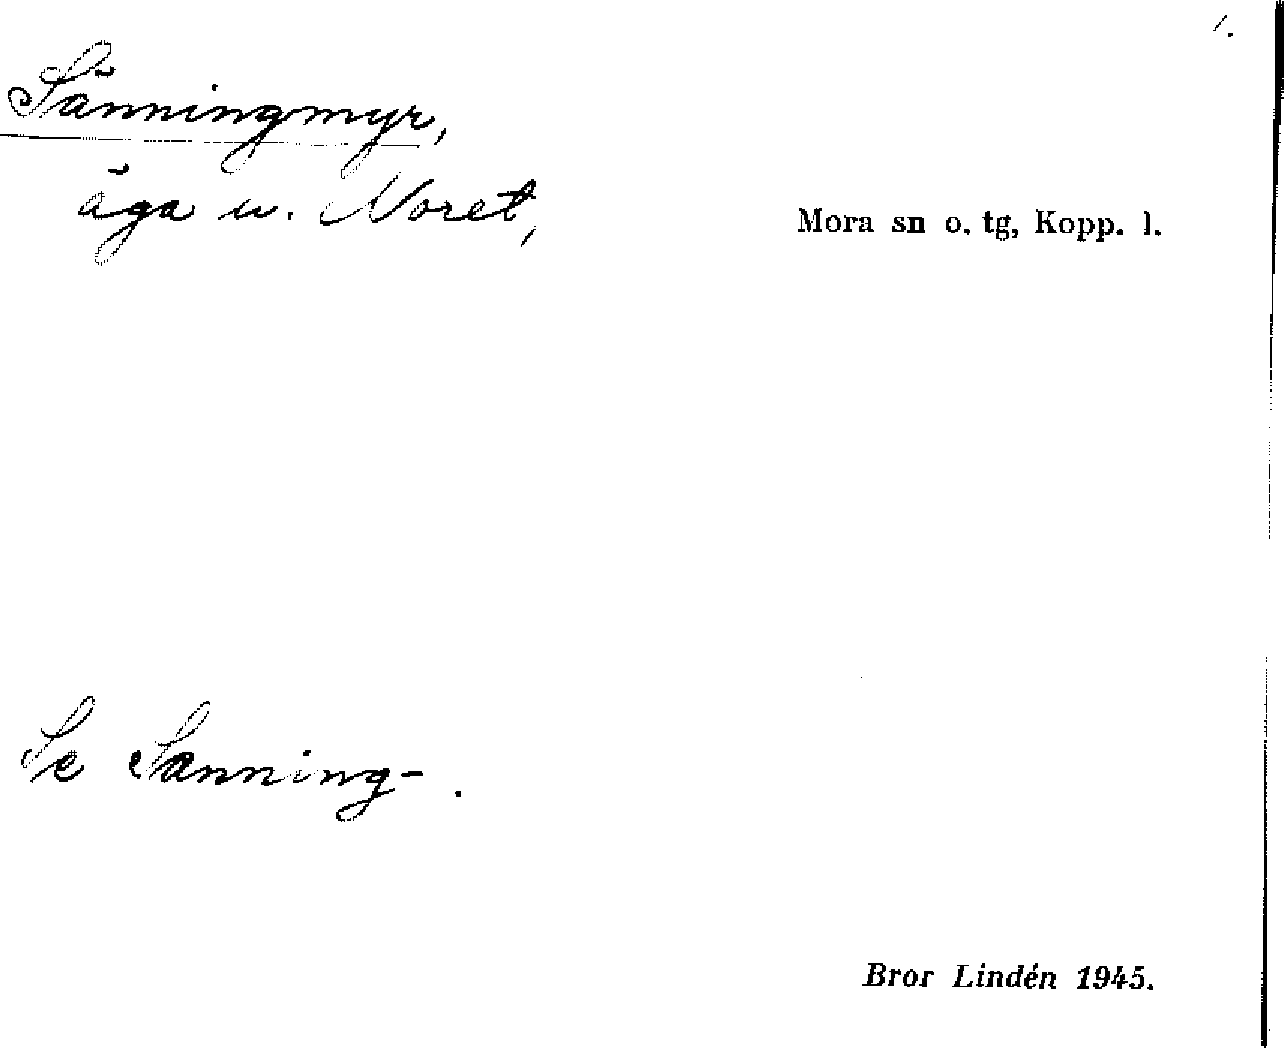 1.
Sänningmyr,
äga u. Noret,
Mora sn o. tg, Kopp. l.
Se Sanning-.
Bror Lindén 1945.